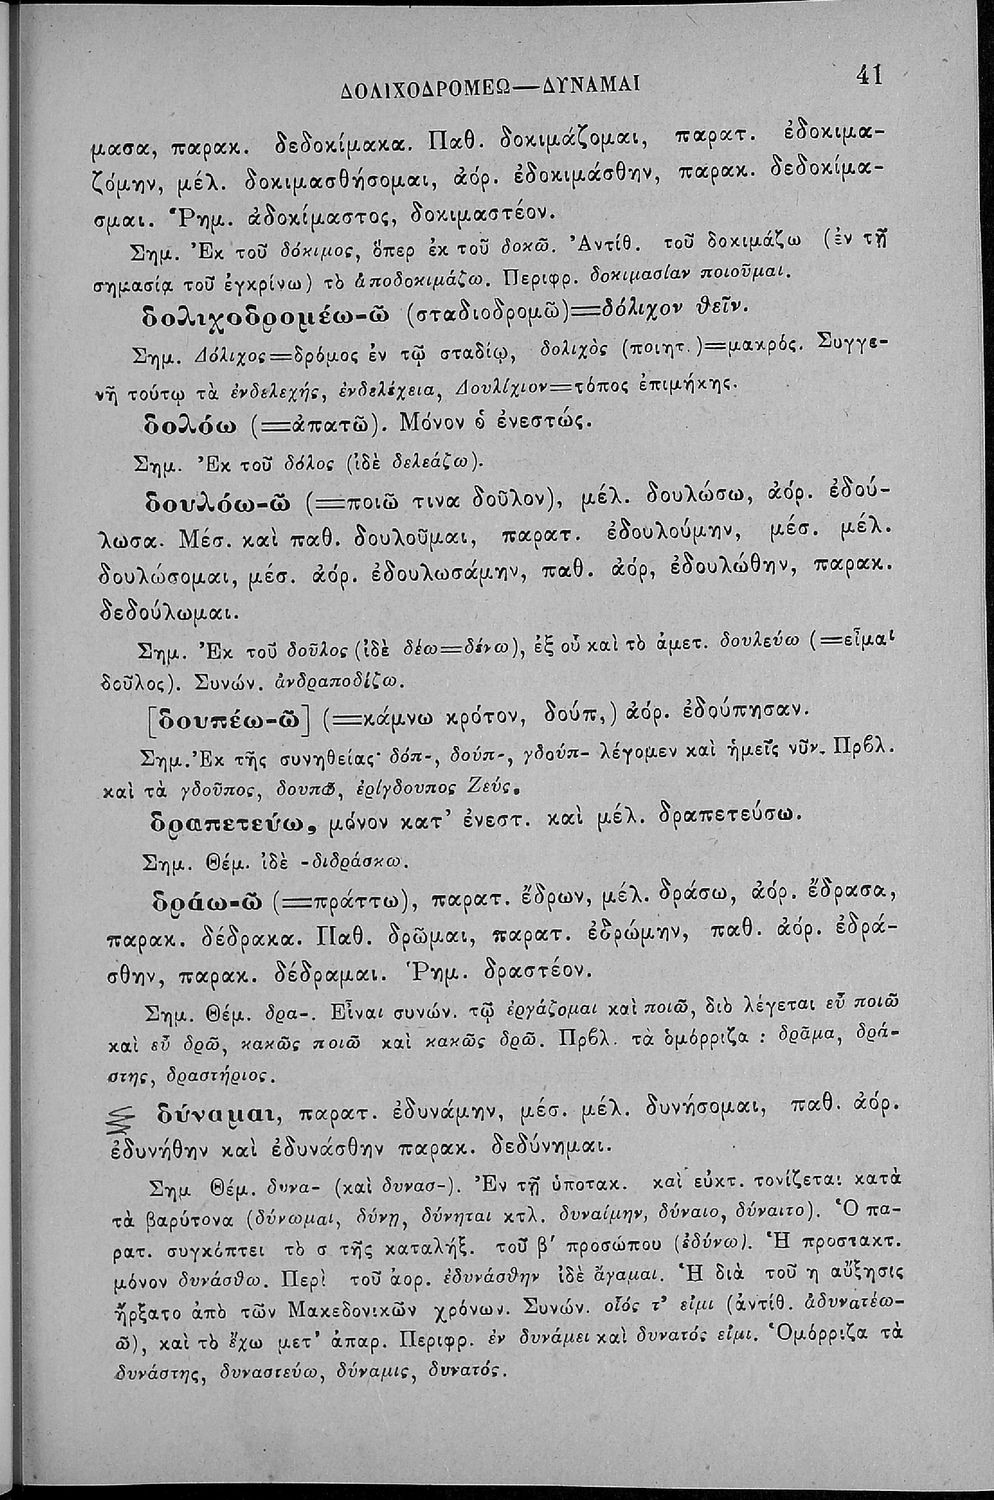 ΔΟΛΙΧΟΔΡΟΜΕΩ—ΔΥΝΑΜΑΙ 41
μασα, παρακ. δεδοκίμακα. Παθ. δοκιμάζομαι, παρατ. ἐδοκιμα-
ζόμην, μέλ. δοκιμασθήσομαι, ἀόρ. ἐδοκιμάσθην, παρακ. δεδοκίμα-
σμαι. Ῥημ. ἀδοκίμαστος, δοκιμαστέον.
Σημ. Ἐκ τοῦ δόκιμος, ὅπερ ἐκ τοῦ δοκῶ. Ἀντίθ. τοῦ δοκιμάζω (ἐν τῇ
σημασίᾳ τοῦ ἐγκρίνω) τὸ ἀποδοκιμάζω. Περιφρ. δοκιμασίαν ποιοῦμαι.
δολιχοδρομέω-ῶ (σταδιοδρομῶ)=δόλιχον θεῖν.
Σημ. Δόλιχος=δρόμος ἐν τῷ σταδίῳ, δολιχὸς (ποιητ.)=μακρός. Συγγε-
νῆ τούτῳ τὰ ἐνδελεχής, ἐνδελέχεια, Δουλίχιον=τόπος ἐπιμήκης.
δολόω (=ἀπατῶ). Μόνον ὁ ἐνεστώς.
Σημ. Ἐκ τοῦ δόλος (ἰδὲ δελεάζω).
δουλόω-ῶ (=ποιῶ τινα δοῦλον), μέλ. δουλώσω, ἀόρ. ἐδού-
λωσα. Μέσ. καὶ παθ. δουλοῦμαι, παρατ. ἐδουλούμην, μέσ. μέλ.
δουλώσομαι, μέσ. ἀόρ. ἐδουλωσάμην, παθ. ἀόρ, ἐδουλώθην, παρακ.
δεδούλωμαι.
Σημ. Ἐκ τοῦ δοῦλος (ἰδὲ δέω=δένω), ἐξ οὗ καὶ τὸ ἀμετ. δουλεύω (=εἶμαι
δοῦλος). Συνών. ἀνδραποδίζω.
[δουπέω-ῶ] (=κάμνω κρότον, δούπ,) ἀόρ. ἐδούπησαν.
Σημ. Ἐκ τῆς συνηθείας· δόπ-, δούπ-, γδούπ- λέγομεν καὶ ἡμεῖς νῦν. Πρβλ.
καὶ τὰ γδοῦπος, δουπῶ, ἐρίγδουπος Ζεύς.
δραπετεύω, μόνον κατ' ἐνεστ. καὶ μέλ. δραπετεύσω.
Σημ. Θέμ. ἰδὲ -διδράσκω.
δράω-ῶ (=πράττω), παρατ. ἔδρων, μέλ. δράσω, ἀόρ. ἔδρασα,
παρακ. δέδρακα. Παθ. δρῶμαι, παρατ. ἐδρώμην, παθ. ἀόρ. ἐδρά-
σθην, παρακ. δέδραμαι. Ῥημ. δραστέον.
Σημ. Θέμ. δρα-. Εἶναι συνών. τῷ ἐργάζομαι καὶ ποιῶ, διὸ λέγεται εὖ ποιῶ
καὶ εὖ δρῶ, κακῶς ποιῶ καὶ κακῶς δρῶ. Πρβλ. τὰ ὁμόρριζα : δρᾶμα, δρά-
στης, δραστήριος.
δύναμαι, παρατ. ἐδυνάμην, μέσ. μέλ. δυνήσομαι, παθ. ἀόρ.
ἐδυνήθην καὶ ἐδυνάσθην παρακ. δεδύνημαι.
Σημ Θέμ. δυνα- (καὶ δυνασ-). Ἐν τῇ ὑποτακ. καὶ εὐκτ. τονίζεται κατὰ
τὰ βαρύτονα (δύνωμαι, δύνῃ, δύνηται κτλ. δυναίμην, δύναιο, δύναιτο). Ὁ πα-
ρατ. συγκόπτει τὸ σ τῆς καταλήξ. τοῦ β' προσώπου (ἐδύνω). Ἡ προστακτ.
μόνον δυνάσθω. Περὶ τοῦ ἀορ. ἐδυνάσθην ἰδὲ ἄγαμαι. Ἡ διὰ τοῦ η αὔξησις
ἤρξατο ἀπὸ τῶν Μακεδονικῶν χρόνων. Συνών. οἷός τ' εἰμι (ἀντίθ. ἀδυνατέω-
ῶ), καὶ τὸ ἔχω μετ' ἀπαρ. Περιφρ. ἐν δυνάμει καὶ δυνατός εἰμι. Ὁμόρριζα τὰ
δυνάστης, δυναστεύω, δύναμις, δυνατός.